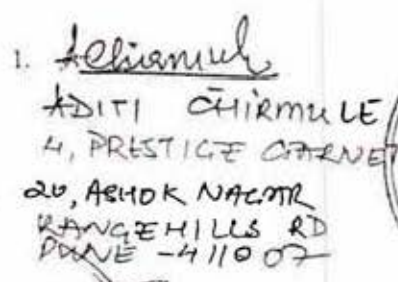 1. AChirmule
ADITI CHIRMULE
4, PRESTIGE GARNET
20, ASHOK NAGAR
RANGEHILLS RD
PUNE - 411007